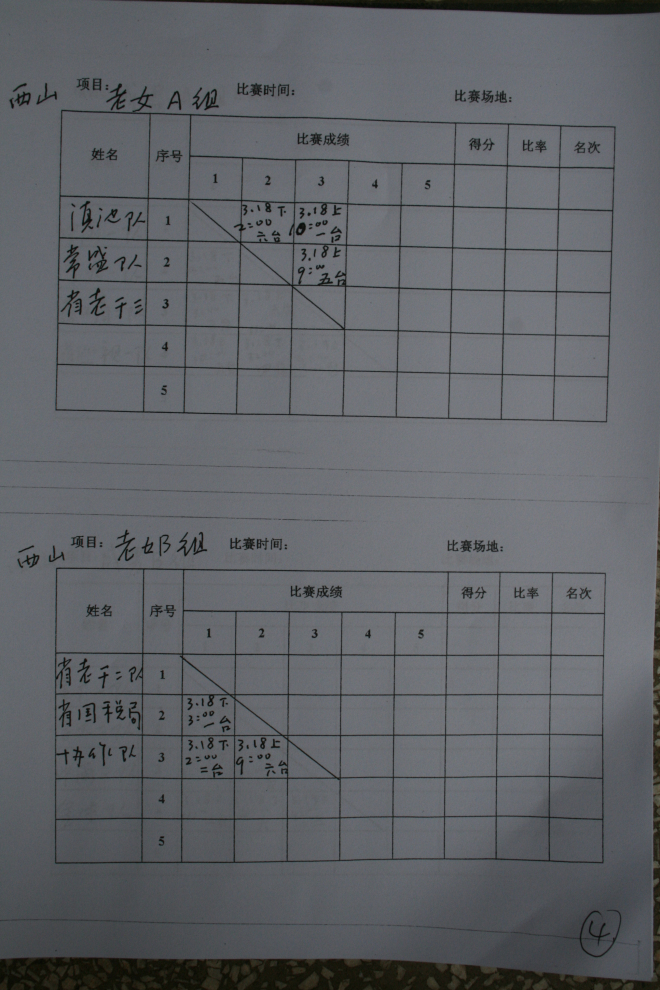 西山 项目: 老女A组 比赛时间: 比赛场地:
姓名 序号 比赛成绩 得分 比率 名次
1 2 3 4 5
滇池队 1 3.18下 2:00 六台 3.18上 10:00 一台
常盛队 2 3.18上 9:00 五台
省老干三 3
4
5
西山 项目: 老女B组 比赛时间: 比赛场地:
姓名 序号 比赛成绩 得分 比率 名次
1 2 3 4 5
省老干二队 1
省国税局 2 3.18下 3:00 一台
协作队 3 3.18下 2:00 二台 3.18上 9:00 六台
4
5
4